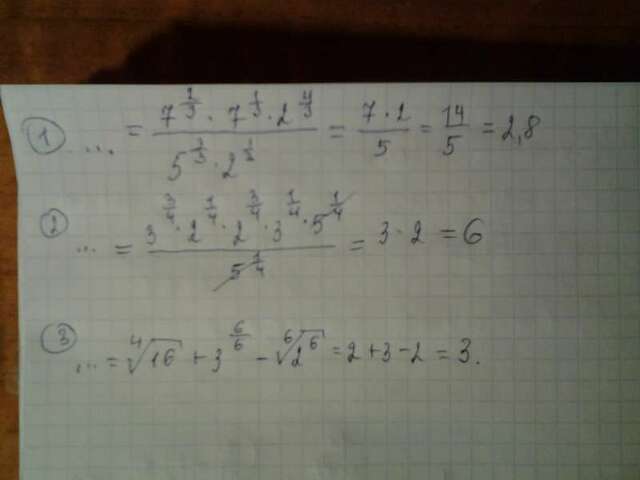 ① ... = (7^(2/3) · 7^(1/3) · 2^(4/3)) / (5^(3/3) · 2^(1/3)) = (7 · 2) / 5 = 14/5 = 2,8
② ... = (3^(3/4) · 2^(1/4) · 2^(3/4) · 3^(1/4) · 5^(1/4)) / 5^(1/4) = 3 · 2 = 6
③ ... = ⁴√16 + 3^(6/6) - ⁶√2⁶ = 2 + 3 - 2 = 3.